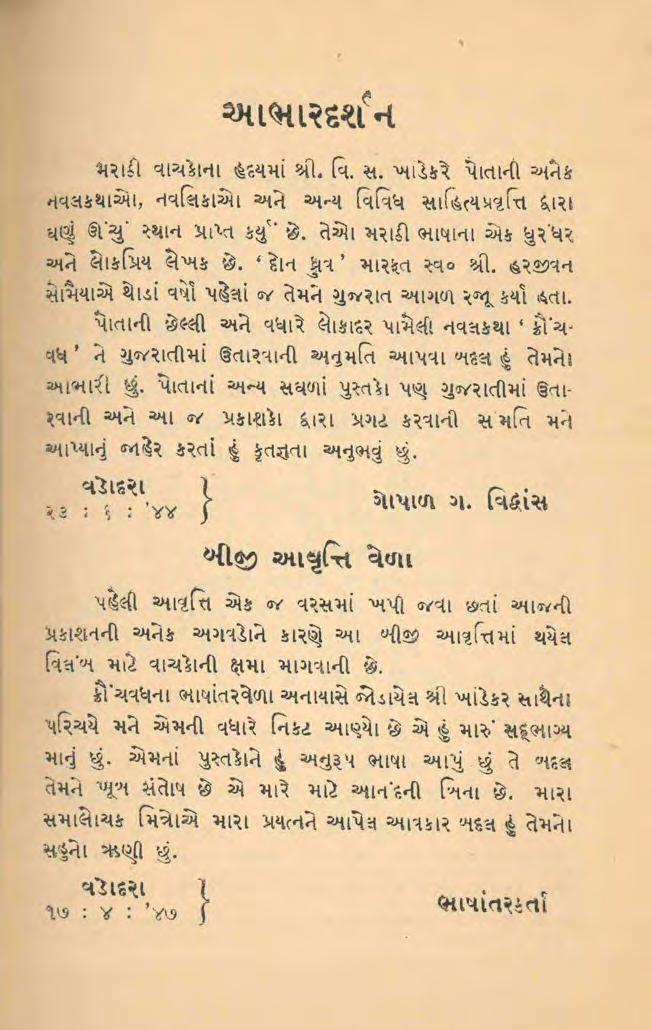 આભારદર્શન
મરાઠી વાચકોના હૃદયમાં શ્રી. વિ. સ. ખાંડેકરે પોતાની અનેક
નવલકથાઓ, નવલિકાઓ અને અન્ય વિવિધ સાહિત્યપ્રવૃત્તિ દ્વારા
ઘણું ઊંચું સ્થાન પ્રાપ્ત કર્યું છે. તેઓ મરાઠી ભાષાના એક ધુરંધર
અને લોકપ્રિય લેખક છે. ‘ દોન ધ્રુવ ’ મારફત સ્વ૦ શ્રી. હરજીવન
સોમૈયાએ થોડાં વર્ષો પહેલાં જ તેમને ગુજરાત આગળ રજૂ કર્યા હતા.
પોતાની છેલ્લી અને વધારે લોકાદર પામેલી નવલકથા ‘ ક્રૌંચ-
વધ ’ ને ગુજરાતીમાં ઉતારવાની અનુમતિ આપવા બદલ હું તેમનો
આભારી છું. પોતાનાં અન્ય સઘળાં પુસ્તકો પણ ગુજરાતીમાં ઉતા-
રવાની અને આ જ પ્રકાશકો દ્વારા પ્રગટ કરવાની સંમતિ મને
આપ્યાનું જાહેર કરતાં હું કૃતજ્ઞતા અનુભવું છું.
વડોદરા
૨૩ : ૬ : ’૪૪
ગોપાળ ગ. વિદ્વાંસ
બીજી આવૃત્તિ વેળા
પહેલી આવૃત્તિ એક જ વરસમાં ખપી જવા છતાં આજની
પ્રકાશનની અનેક અગવડોને કારણે આ બીજી આવૃત્તિમાં થયેલ
વિલંબ માટે વાચકોની ક્ષમા માગવાની છે.
ક્રૌંચવધના ભાષાંતરવેળા અનાયાસે જોડાયેલ શ્રી ખાંડેકર સાથેના
પરિચયે મને એમની વધારે નિકટ આણ્યો છે એ હું મારું સદ્ભાગ્ય
માનું છું. એમનાં પુસ્તકોને હું અનુરૂપ ભાષા આપું છું તે બદલ
તેમને ખૂબ સંતોષ છે એ મારે માટે આનંદની બિના છે. મારા
સમાલોચક મિત્રોએ મારા પ્રયત્નને આપેલ આવકાર બદલ હું તેમનો
સહુનો ઋણી છું.
વડોદરા
૧૭ : ૪ : ’૪૭
ભાષાંતરકર્તા